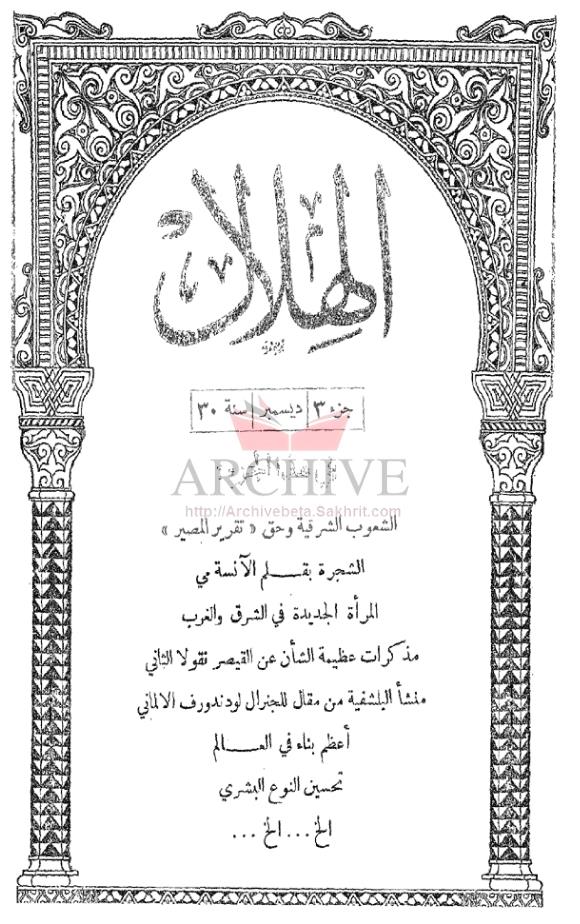 الهلال
جزء ٣ | ديسمبر | سنة ٣٠
ARCHIVE
http://Archivebeta.Sakhrit.com
الشعوب الشرقية وحق « تقرير المصير »
الشجرة بقلم الآنسة مي
المرأة الجديدة في الشرق والغرب
مذكرات عظيمة الشأن عن القيصر نقولا الثاني
منشأ البلشفية من مقال للجنرال لودندورف الالماني
أعظم بناء في العالم
تحسين النوع البشري
الخ ... الخ ...